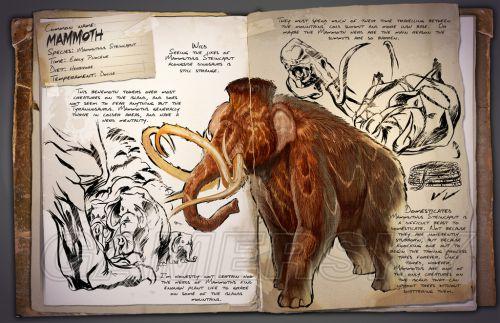 Common Name:
Mammoth
Species: Mammuthus Steincaput
Time: Early Pliocene
Diet: Herbivore
Temperament: Docile
Wild
Seeing the likes of
Mammuthus Steincaput
alongside dinosaurs is
still strange.
This behemoth towers over most
creatures on the island, and does
not seem to fear anything but the
Tyrannosaurus. Mammoths generally
thrive in colder areas, and have a
herd mentality.
I'm honestly not certain how
the herds of Mammoths find
enough plant life to graze
on some of the islands
mountains.
They must spend much of their time travelling between
the mountains, cons summit and more vain base. Or
maybe the Mammoth herds are the main reason the
summits are so barren.
Domesticated
Mammuthus Steincaput is
a difficult beast to
domesticate. Not because
they are inherently
stubborn, but because
knocking one out to
begin the taming process
takes forever. Once
tamed, however,
Mammoths are one of
the only creatures on
the island that can
uproot trees without
shattering them.